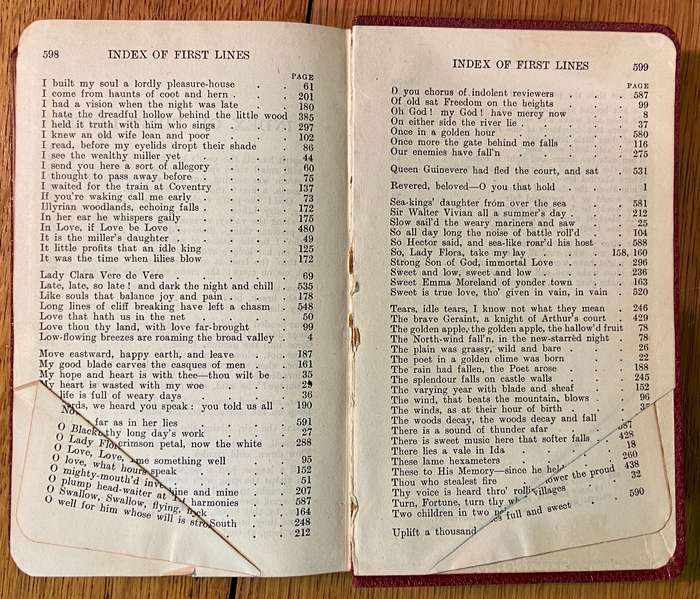 598 INDEX OF FIRST LINES
PAGE
I built my soul a lordly pleasure-house . . 61
I come from haunts of coot and hern . . . 201
I had a vision when the night was late . . 180
I hate the dreadful hollow behind the little wood 385
I held it truth with him who sings . . . 297
I knew an old wife lean and poor . . . 102
I read, before my eyelids dropt their shade . 86
I see the wealthy miller yet . . . . 44
I send you here a sort of allegory . . . 60
I thought to pass away before . . . . 75
I waited for the train at Coventry . . . 137
If you're waking call me early . . . . 73
Illyrian woodlands, echoing falls . . . . 172
In her ear he whispers gaily . . . . 175
In Love, if Love be Love . . . . 480
It is the miller's daughter . . . . 49
It little profits that an idle king . . . 125
It was the time when lilies blow . . . 172
Lady Clara Vere de Vere . . . . 69
Late, late, so late! and dark the night and chill . 535
Like souls that balance joy and pain . . . 178
Long lines of cliff breaking have left a chasm . 548
Love that hath us in the net . . . . 50
Love thou thy land, with love far-brought . 99
Low-flowing breezes are roaming the broad valley . 4
Move eastward, happy earth, and leave . . 187
My good blade carves the casques of men . . 161
My hope and heart is with thee—thou wilt be . 35
My heart is wasted with my woe . . . 29
life is full of weary days . . . 36
ds, we heard you speak: you told us all . 190
No
far as in her lies . . . 591
thy long day's work . . . 27
crimson petal, now the white . 288
me something well . . . 95
speak . . . 152
. . . 51
ine and mine . . . 207
harmonies . . . 587
ck . . . 164
South . . . 248
. . . 212
O Black
O Lady Flo
O Love, Love,
O love, what hours
O mighty-mouth'd inve
O plump head-waiter at T
O Swallow, Swallow, flying,
O well for him whose will is stro
INDEX OF FIRST LINES 599
PAGE
O you chorus of indolent reviewers . . . 587
Of old sat Freedom on the heights . . . 99
Oh God! my God! have mercy now . . . 8
On either side the river lie . . . . 37
Once in a golden hour . . . . 580
Once more the gate behind me falls . . . 116
Our enemies have fall'n . . . . 275
Queen Guinevere had fled the court, and sat . 531
Revered, beloved—O you that hold . . . 1
Sea-kings' daughter from over the sea . . 581
Sir Walter Vivian all a summer's day . . . 212
Slow sail'd the weary mariners and saw . . 25
So all day long the noise of battle roll'd . . 104
So Hector said, and sea-like roar'd his host . 588
So, Lady Flora, take my lay . . . 158, 160
Strong Son of God, immortal Love . . . 296
Sweet and low, sweet and low . . . . 236
Sweet Emma Moreland of yonder town . . 163
Sweet is true love, tho' given in vain, in vain . 520
Tears, idle tears, I know not what they mean . 246
The brave Geraint, a knight of Arthur's court . 429
The golden apple, the golden apple, the hallow'd fruit 78
The North-wind fall'n, in the new-starrèd night . 78
The plain was grassy, wild and bare . . . 26
The poet in a golden clime was born . . 22
The rain had fallen, the Poet arose . . . 188
The splendour falls on castle walls . . . 245
The varying year with blade and sheaf . . 152
The wind, that beats the mountain, blows . . 96
The winds, as at their hour of birth . . 35
The woods decay, the woods decay and fall .
There is a sound of thunder afar . . 587
There is sweet music here that softer falls . 428
There lies a vale in Ida . . . 18
These lame hexameters . . . 260
These to His Memory—since he held . . 438
Thou who stealest fire
Thy voice is heard thro' rolli
Turn, Fortune, turn thy wh
Two children in two
Uplift a thousand
ower the proud 32
villages
s full and sweet 590